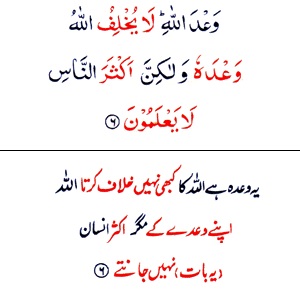 وَعْدَ اللّٰهِ ؕ لَا يُخْلِفُ اللّٰهُ
وَعْدَهٗ وَ لٰكِنَّ اَكْثَرَ النَّاسِ
لَا يَعْلَمُوْنَ ۶
یہ وعدہ ہے اللہ کا کبھی نہیں خلاف کرتا اللہ
اپنے وعدے کے مگر اکثر انسان
(یہ بات) نہیں جانتے ۶